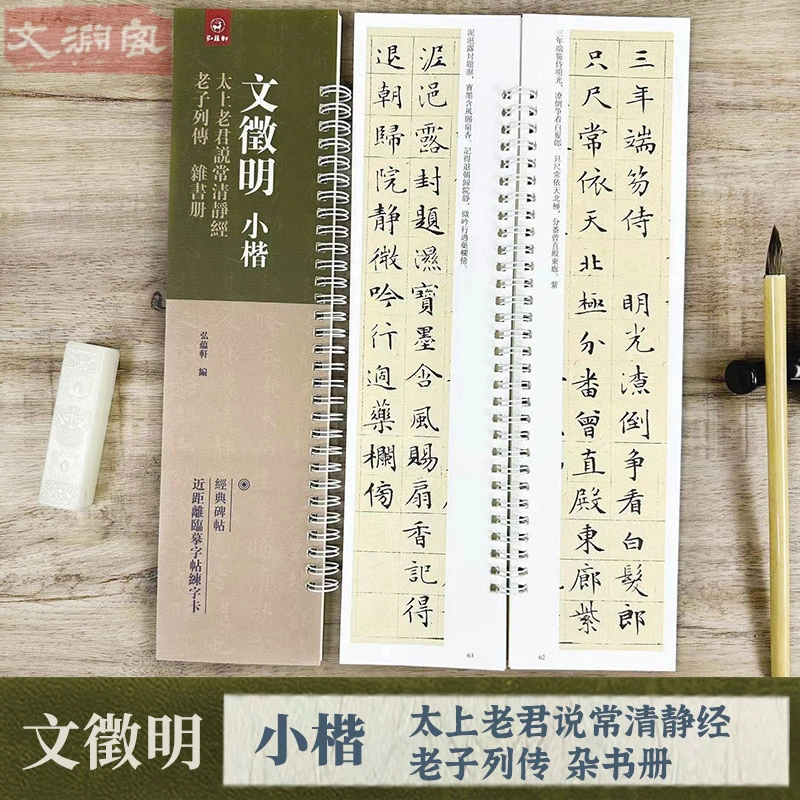 弘蘊軒
文徵明 小楷
太上老君説常清靜經
老子列傳 雜書册
弘蘊軒 編
經典碑帖
近距離臨摹字帖練字卡
三年端笏侍明光,潦倒争看白髮郎。只尺常依天北極,分番曾直殿東廊。紫
三年端笏侍 明光潦倒争看白髮郎
只尺常依天北極分番曾直殿東廊紫
62
泥浥露封題濕,寶墨含風賜扇香。記得退朝歸院静,微吟行過藥欄傍。
泥浥露封題濕寶墨含風賜扇香記得
退朝歸院静微吟行過藥欄傍
63
文徵明 小楷
太上老君说常清静经
老子列传 杂书册